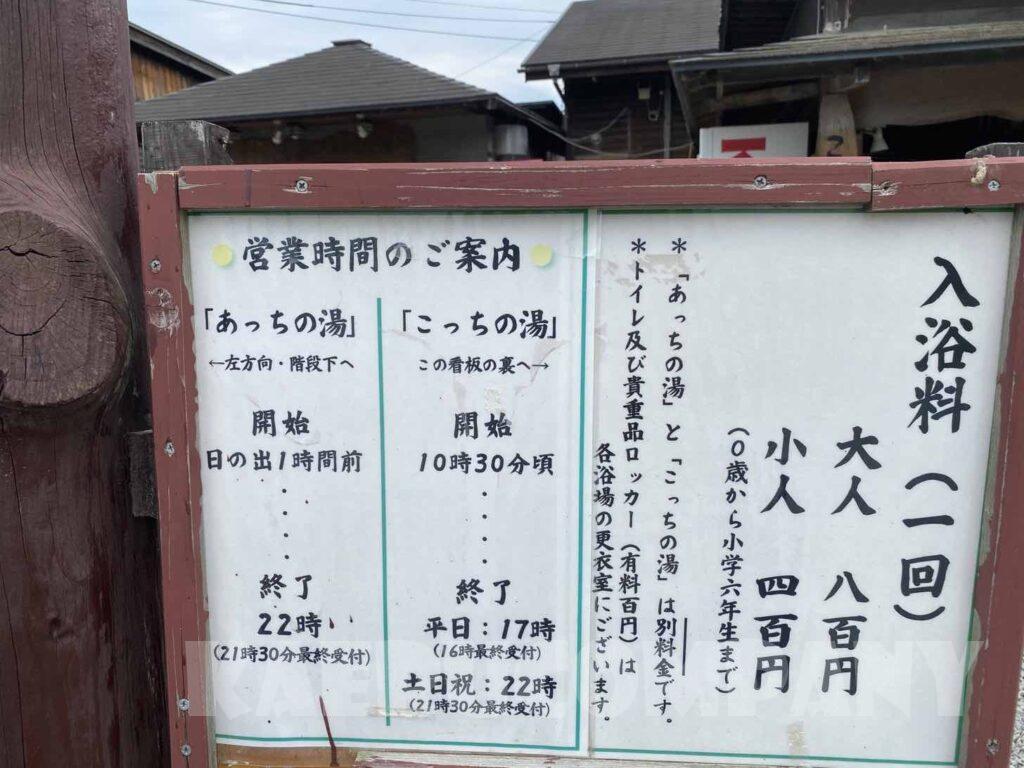 営業時間のご案内
「あっちの湯」
←左方向・階段下へ
開始
日の出1時間前
・
・
・
・
終了
22時
(21時30分最終受付)
「こっちの湯」
この看板の裏へ→
開始
10時30分頃
・
・
・
・
終了
平日：17時
(16時最終受付)
土日祝：22時
(21時30分最終受付)
入浴料（一回）
大人 八百円
小人 四百円
（0歳から小学六年生まで）
＊「あっちの湯」と「こっちの湯」は別料金です。
＊トイレ及び貴重品ロッカー（有料百円）は
各浴場の更衣室にございます。